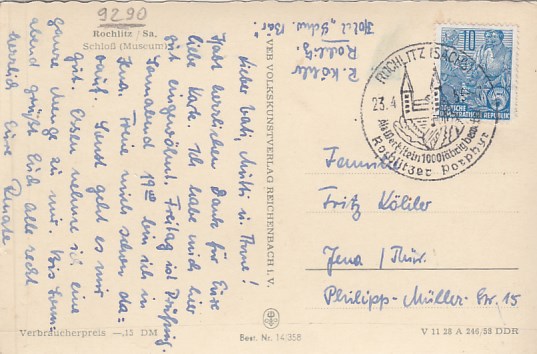 9290
Rochlitz / Sa.
Schloß (Museum)
Lieber Vati, Mutti u. Anne!
Habt herzlichen Dank für Eure
liebe Karte. Ich habe mich hier
gut eingewöhnt. Freitag ist Prüfung.
Sonnabend 19⁰⁰ bin ich in
Jena. Freue mich schon da-
rauf. Sonst geht es mir
gut. Essen nehme ich eine
ganze Menge zu mir. Bis Sonn-
abend grüßt Euch alle recht
herzlich Eure
Renate
Verbraucherpreis —.15 DM
VEB VOLKSKUNSTVERLAG REICHENBACH I. V.
Best. Nr. 14/358
R. Köhler
Rochlitz
Hotel "Schw. Bär"
ROCHLITZ (SACHS)
23.4.
Als Werkstein 1000 jährig bewährt
Rochlitzer Porphyr
10
DEUTSCHE
DEMOKRATISCHE REPUBLIK
5
Familie
Fritz Köhler
Jena / Thür.
Philipp-Müller-Str. 15
V 11 28 A 246/58 DDR